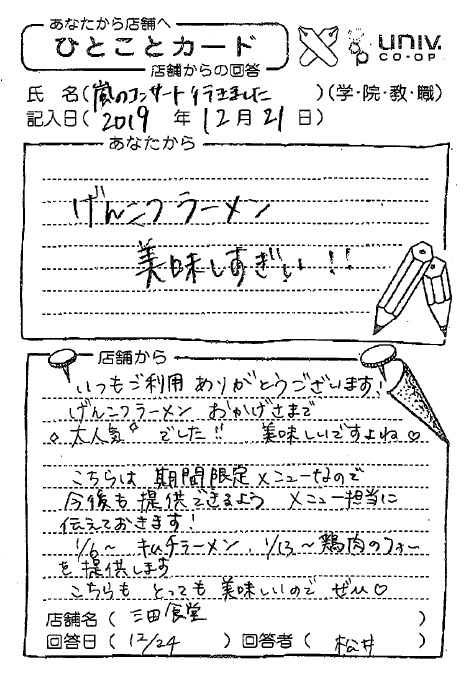 あなたから店舗へ
ひとことカード
店舗からの回答
UNIV.
CO-OP
氏 名(嵐のコンサート行ってきました )(学・院・教・職)
記入日( 2019 年 12月 21 日)
あなたから
げんこつラーメン
美味しすぎぃ!!
店舗から
いつもご利用 ありがとうございます!
げんこつラーメン おかげさまで
大人気 でした!! 美味しいですよね♡
こちらは 期間限定メニューなので
今後も提供できるよう メニュー担当に
伝えておきます!
1/6〜 キムチラーメン、1/13〜鶏肉のフォー
を提供します
こちらも とっても 美味しいので ぜひ♡
店舗名( 三田食堂 )
回答日( 12/24 )回答者( 松井 )